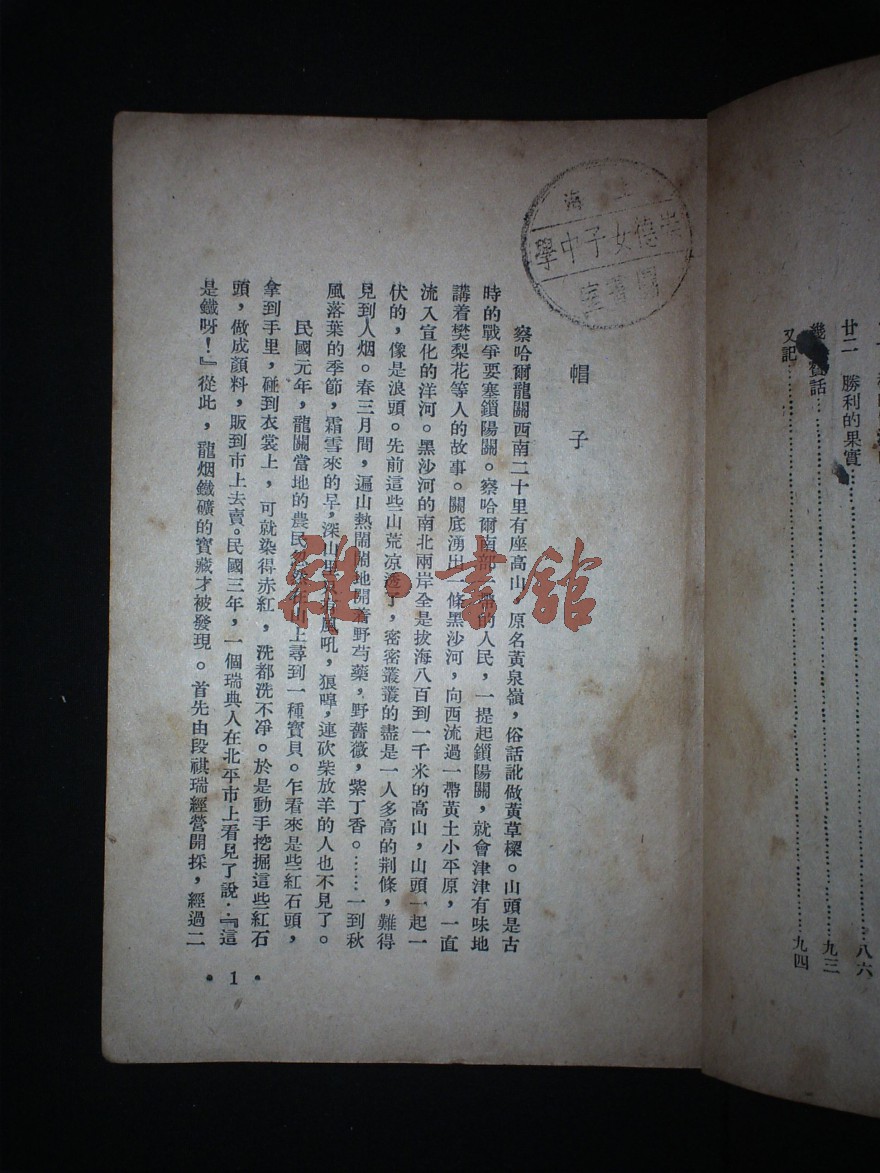 廿二 勝利的果實……八六
話……九三
又記……九四
海
崇德女子中學
圖書室
帽子
察哈爾龍關西南二十里有座高山 原名黃泉嶺，俗話訛做黃草樑。山頭是古
時的戰爭要塞鎖陽關。察哈爾南部一帶的人民，一提起鎖陽關，就會津津有味地
講着樊梨花等人的故事。關底湧出一條黑沙河，向西流過一帶黃土小平原，一直
流入宣化的洋河。黑沙河的南北兩岸全是拔海八百到一千米的高山，山頭一起一
伏的，像是浪頭。先前這些山荒凉透了，密密叢叢的盡是一人多高的荆條，難得
見到人烟。春三月間，遍山熱鬧鬧地開着野芍藥，野薔薇，紫丁香。……一到秋
風落葉的季節，霜雪來的早，深山風吼，狼嘷，連砍柴放羊的人也不見了。
民國元年，龍關當地的農民山上尋到一種寶貝。乍看來是些紅石頭，
拿到手里，碰到衣裳上，可就染得赤紅，洗都洗不凈。於是動手挖掘這些紅石
頭，做成顏料，販到市上去賣。民國三年，一個瑞典人在北平市上看見了說：『這
是鐵呀！』從此，龍烟鐵礦的寶藏才被發現。首先由段祺瑞經營開採，經過二
• 1 •
雜·書館